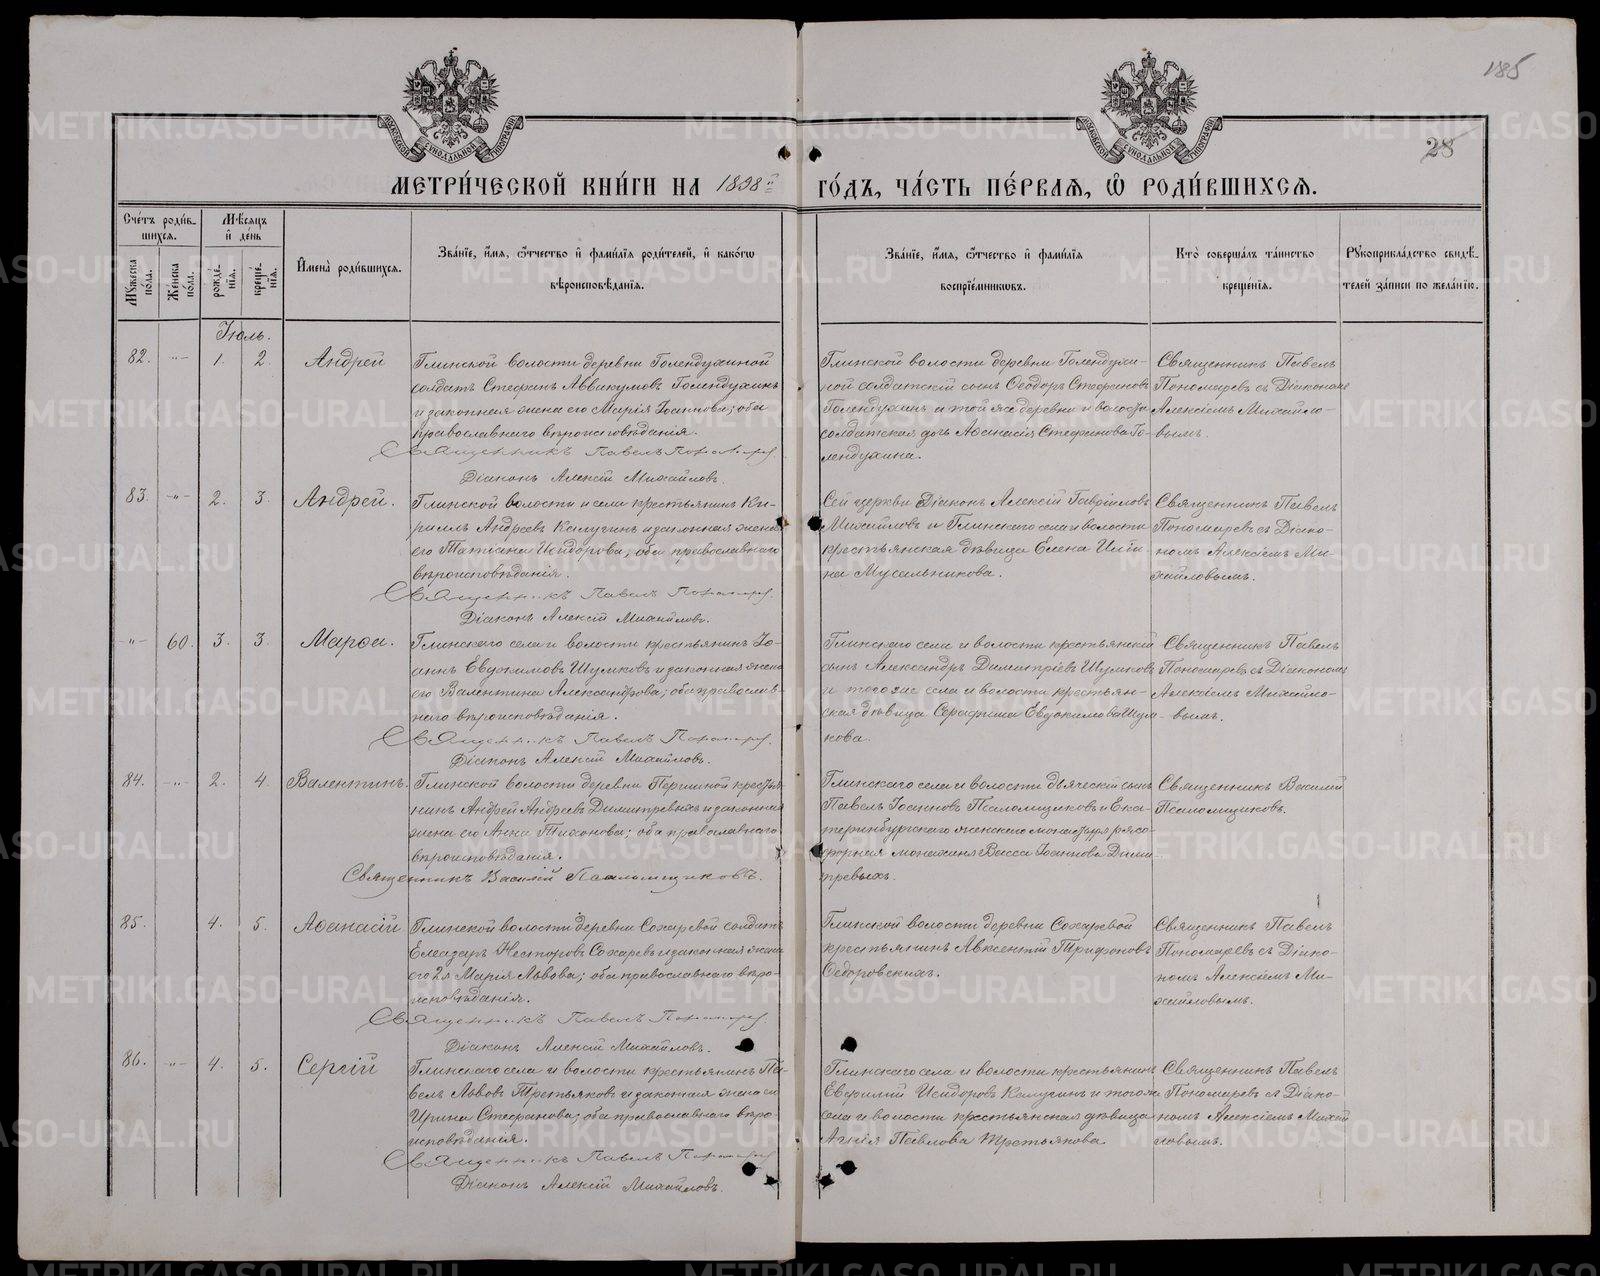 185
28
МОСКОВСКОЙ СѴНОДАЛЬНОЙ ТИПОГРАФІИ
МОСКОВСКОЙ СѴНОДАЛЬНОЙ ТИПОГРАФІИ
МЕТРИ́ЧЕСКОЙ КНИ́ГИ НА 1898й ГО́ДЪ, ЧА́СТЬ ПЕ́РВАѦ, Ѡ҆ РОДИ́ВШИХСѦ.
Сче́тъ роди́в-
шихсѧ.
Мꙋ́жеска по́ла.
Же́нска по́ла.
Мѣ́сѧцъ
и҆ де́нь
рожде́-
нїѧ.
креще́-
нїѧ.
И҆мена̀ роди́вшихсѧ.
Зва́нїе, и҆́мѧ, ѻ҆́тчество и҆ фами́лїѧ роди́телей, и҆ како́гѡ
вѣроисповѣ́данїѧ.
Зва́нїе, и҆́мѧ, ѻ҆́тчество и҆ фами́лїѧ
воспрїе́мникѡвъ.
Кто̀ соверша́лъ та́инство
креще́нїѧ.
Рꙋкоприкла́дство свидѣ́-
телей за́писи по жела́нїю.
Іюль.
82. -"- 1. 2. Андрей
Глинской волости деревни Голендухиной
солдатъ Стефанъ Аввакумовъ Голендухинъ
и законная жена его Марія Іоаннова; оба
православнаго вѣроисповѣданія.
Священникъ Павелъ Пономаревъ
Діаконъ Алексій Михайловъ.
Глинской волости деревни Голендухи-
ной солдатскій сынъ Ѳеодоръ Стефановъ
Голендухинъ и той же деревни и волости
солдатская дочь Аѳанасія Стефанова Го-
лендухина.
Священникъ Павелъ
Пономаревъ съ Діакономъ
Алексіемъ Михайло-
вымъ.
83. -"- 2. 3. Андрей.
Глинской волости и села крестьянинъ Ки-
риллъ Андреевъ Калугинъ и законная жена
его Татіана Исидорова; оба православнаго
вѣроисповѣданія.
Священникъ Павелъ Пономаревъ
Діаконъ Алексій Михайловъ.
Сей церкви Діаконъ Алексій Гавріиловъ
Михайловъ и Глинскаго села и волости
крестьянская дѣвица Елена Ильи-
на Мусальникова.
Священникъ Павелъ
Пономаревъ съ Діако-
номъ Алексіемъ Ми-
хайловымъ.
-"- 60. 3. 3. Марѳа.
Глинскаго села и волости крестьянинъ Іо-
аннъ Евдокимовъ Шумковъ и законная жена
его Валентина Александрова; оба православ-
наго вѣроисповѣданія.
Священникъ Павелъ Пономаревъ
Діаконъ Алексій Михайловъ.
Глинскаго села и волости крестьянскій
сынъ Александръ Димитріевъ Шумковъ
и того же села и волости крестьян-
ская дѣвица Серафима Евдокимова Шум-
кова.
Священникъ Павелъ
Пономаревъ съ Діакономъ
Алексіемъ Михайло-
вымъ.
84. -"- 2. 4. Валентинъ.
Глинской волости деревни Першиной крестья-
нинъ Андрей Андреевъ Димитревыхъ и законная
жена его Анна Тихонова; оба православнаго
вѣроисповѣданія.
Священникъ Василій Псаломщиковъ.
Глинскаго села и волости дьяческій сынъ
Павелъ Іоанновъ Псаломщиковъ и Ека-
теринбургскаго женскаго монастыря рясо-
форная монахиня Васса Іоаннова Дими-
тревыхъ.
Священникъ Василій
Псаломщиковъ.
85. 4. 5. Аѳанасій
Глинской волости деревни Сохаревой солдатъ
Елеазаръ Несторовъ Сохаревъ и законная жена
его 2я Марія Львова; оба православнаго вѣро-
исповѣданія.
Священникъ Павелъ Пономаревъ
Діаконъ Алексій Михайловъ.
Глинской волости деревни Сохаревой
крестьянинъ Авксентій Трифоновъ
Ѳедоровскихъ.
Священникъ Павелъ
Пономаревъ съ Діако-
номъ Алексіемъ Ми-
хайловымъ.
86. -"- 4. 5. Сергій
Глинскаго села и волости крестьянинъ Па-
велъ Львовъ Третьяковъ и законная жена его
Ирина Стефанова; оба православнаго вѣро-
исповѣданія.
Священникъ Павелъ Пономаревъ
Діаконъ Алексій Михайловъ.
Глинскаго села и волости крестьянинъ
Исидоровъ Калугинъ и того же
села и волости крестьянская дѣвица
Агнія Павлова Третьякова.
Священникъ Павелъ
Пономаревъ съ Діако-
номъ Алексіемъ Михай-
ловымъ.
METRIKI.GASO-URAL.RU